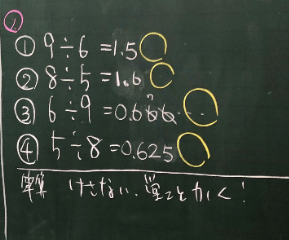 ①
① 9÷6=1.5
② 8÷5=1.6
③ 6÷9=0.666...
④ 5÷8=0.625
けさない かく!